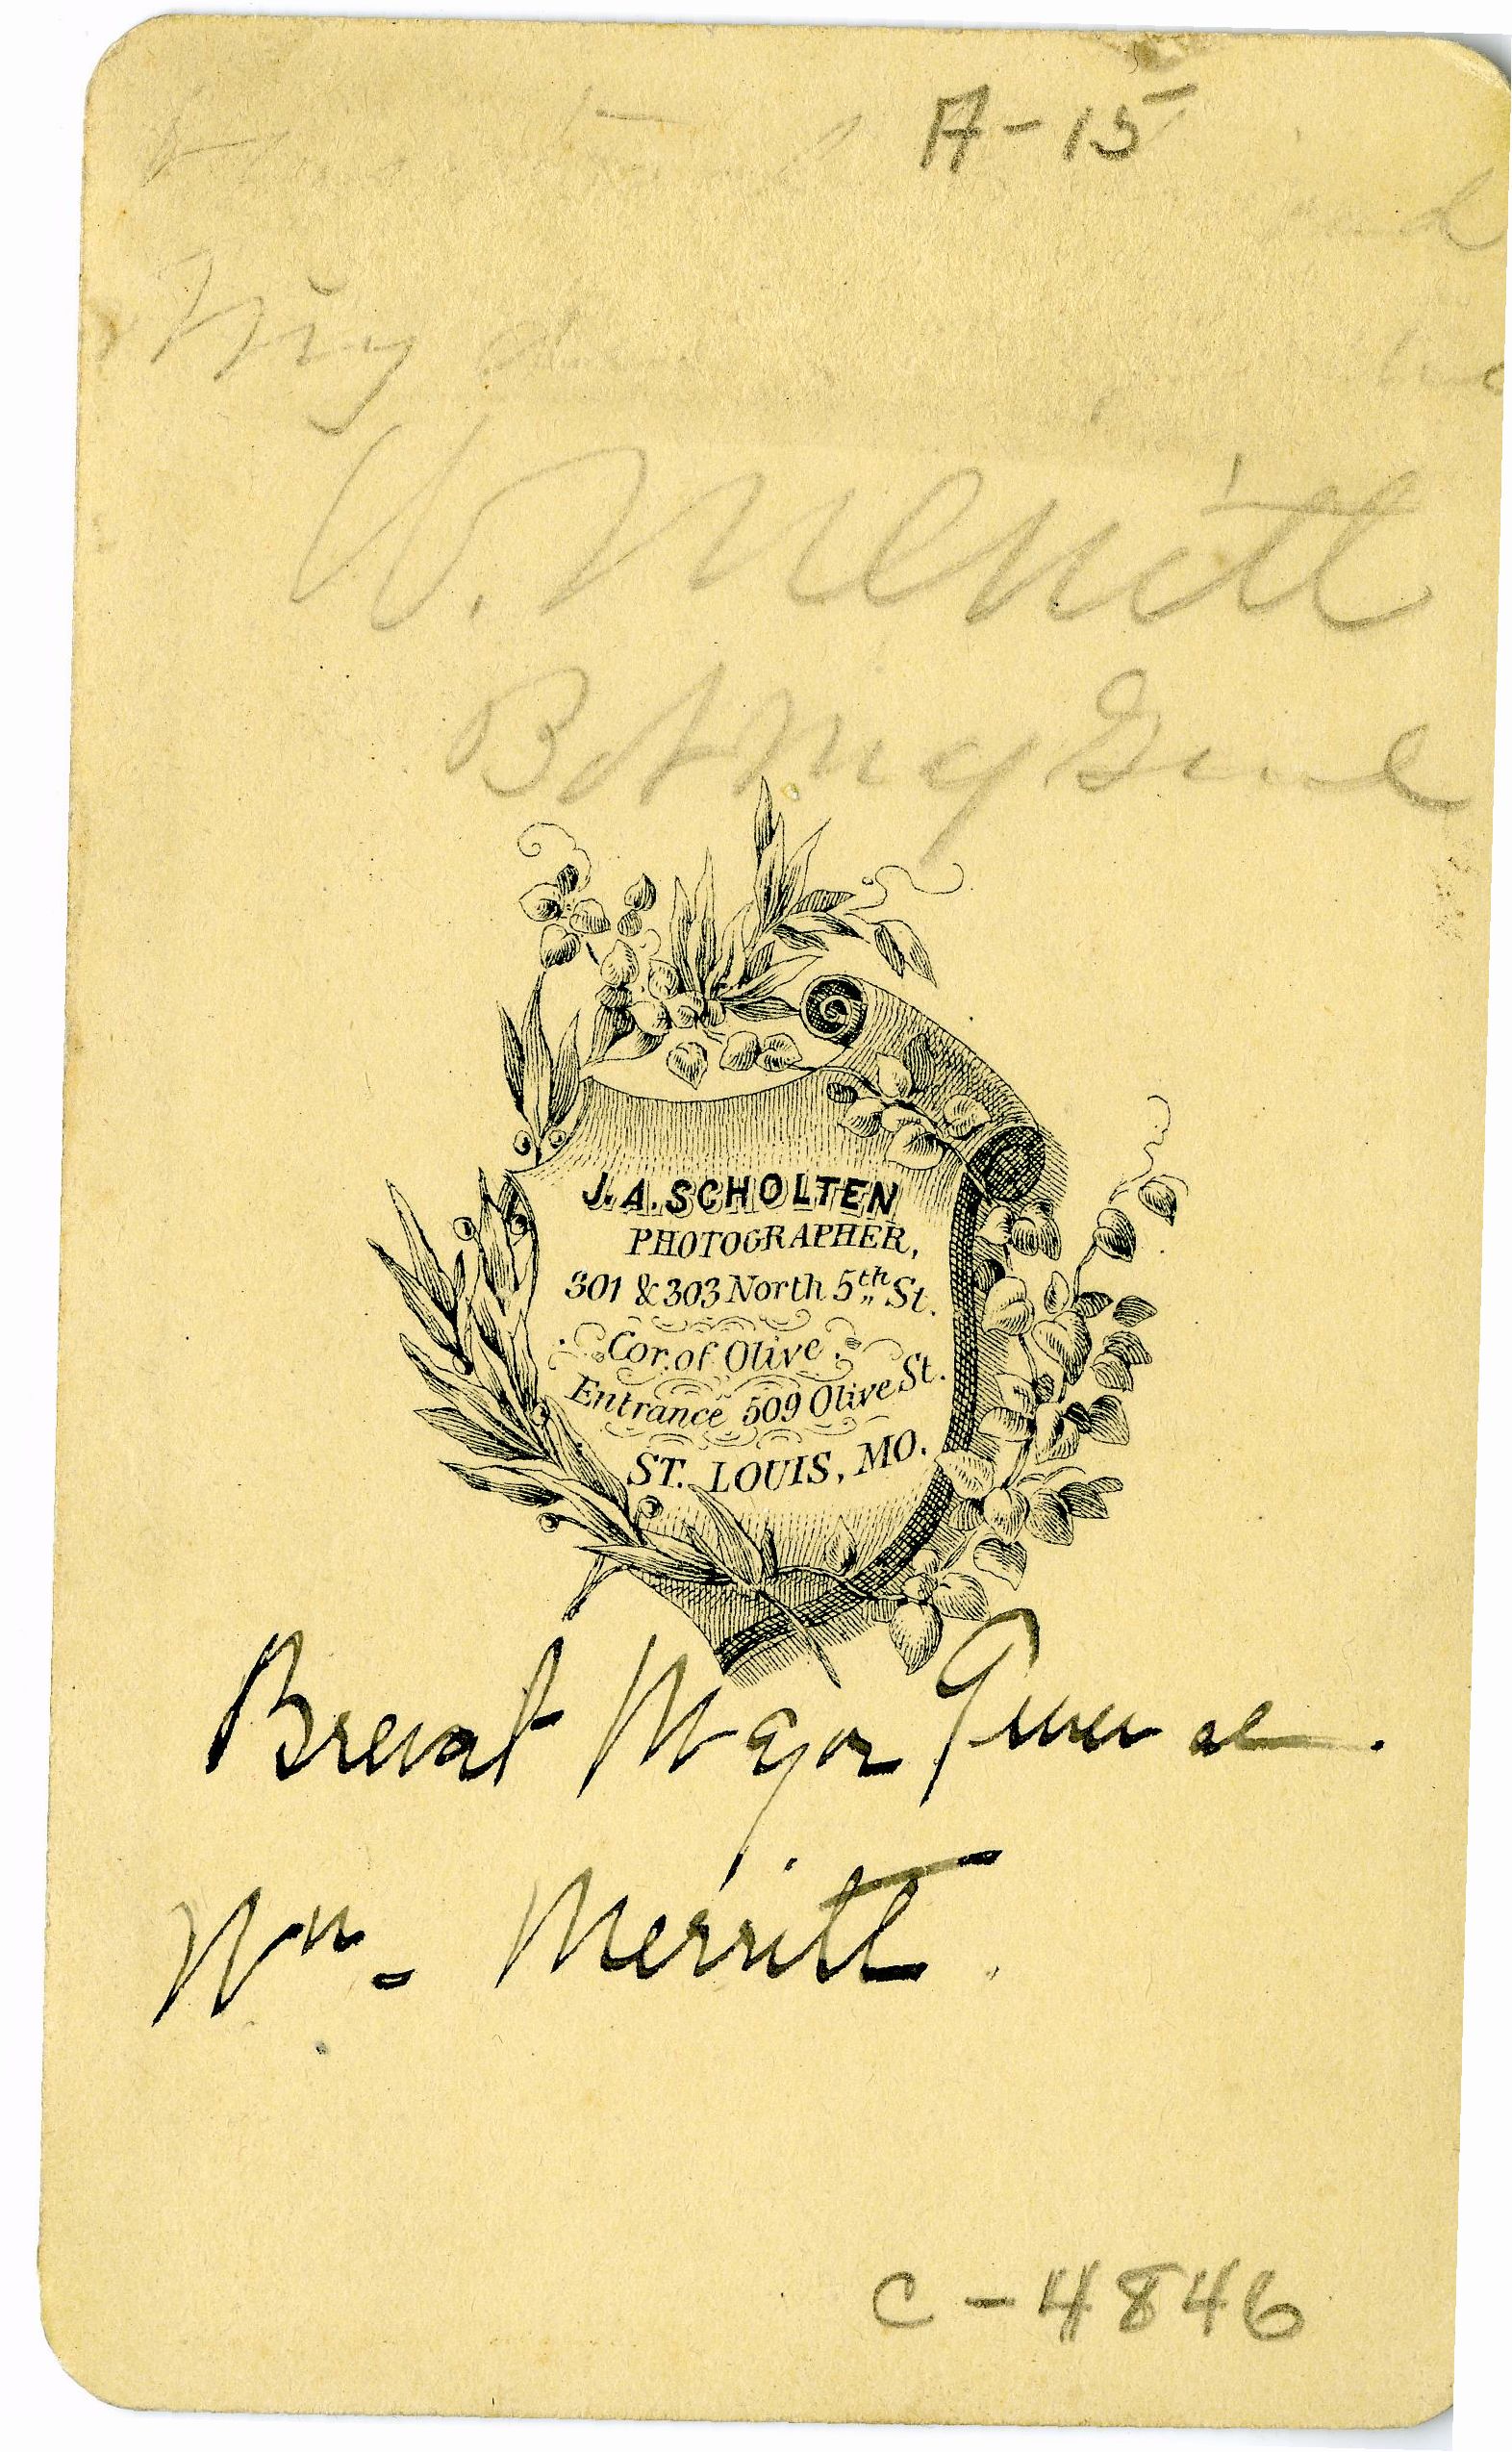 A-15
My
W. Merritt
Bt Maj Genl
J. A. SCHOLTEN
PHOTOGRAPHER,
301 & 303 North 5th St.
Cor. of Olive.
Entrance 509 Olive St.
ST. LOUIS, MO.
Brevat Major General.
Wm. Merritt.
C-4846